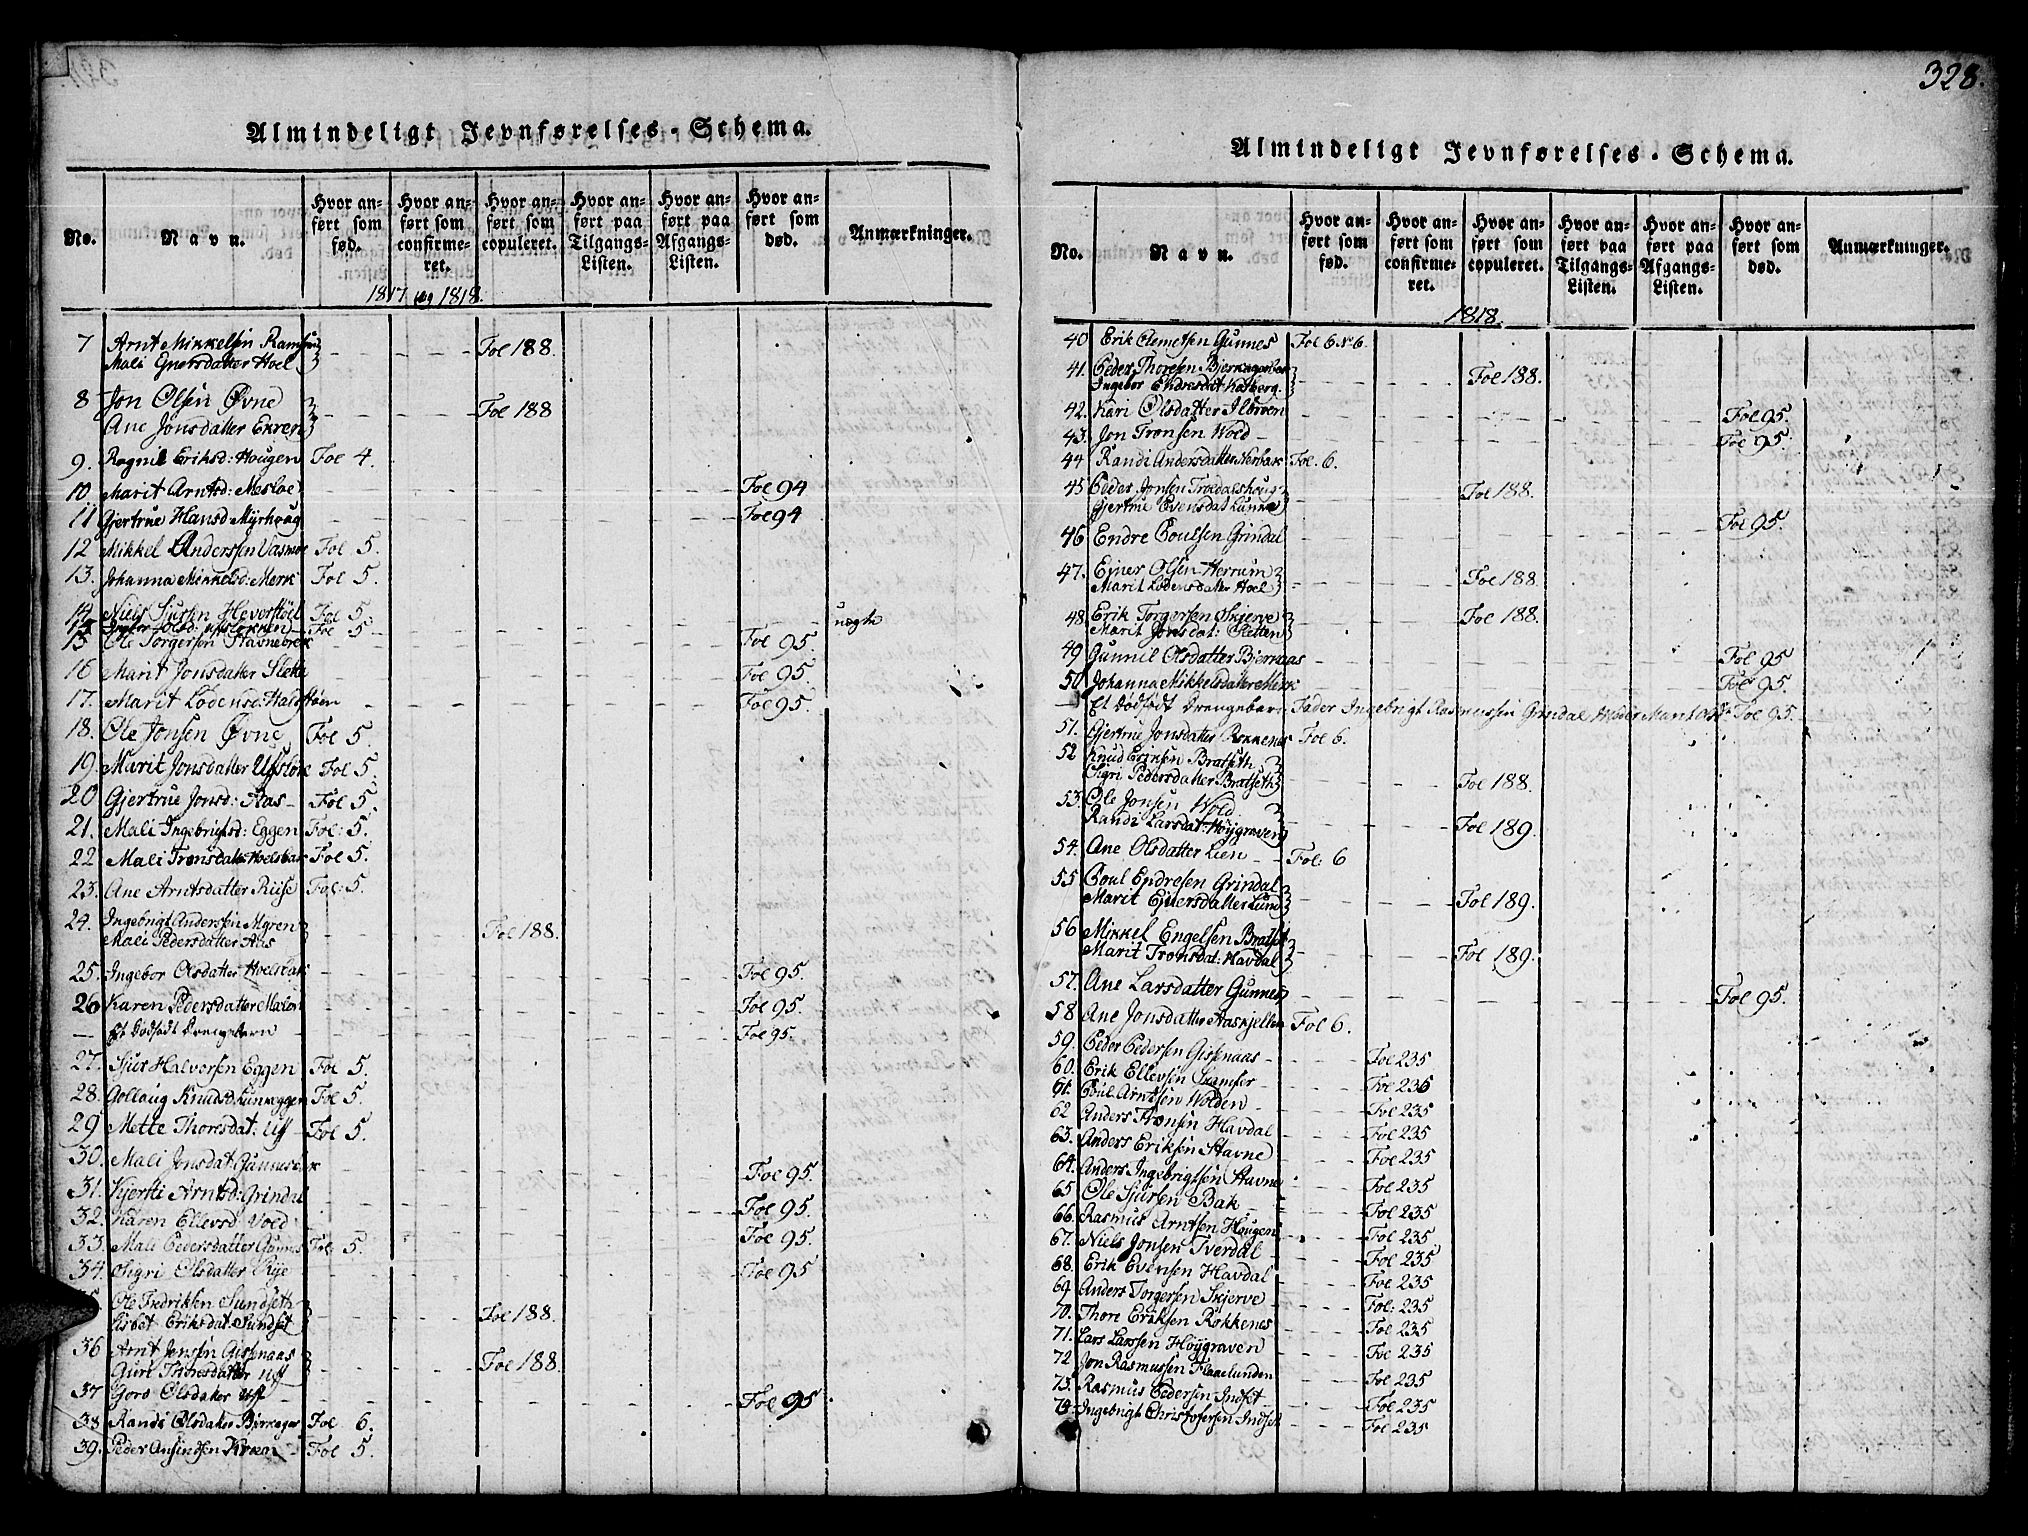 Almindeligt Jevnførelses-Schema.
No.
Navn.
Hvor anført som fød.
Hvor anført som confirmeret.
Hvor anført som copuleret.
Hvor anført paa Tilgangs-Listen.
Hvor anført paa Afgangs-Listen.
Hvor anført som død.
Anmærkninger.
1817 og 1818.
7 Arnt Mikkelsen
Mali Hoel Fol 188.
8 Jon Olsen Øvne
Ane Jonsdatter Ekren Fol 188
9. Ragnil Eriksd: Hougen Fol 4.
10 Marit Arntsd: Mesloe Fol 94
11 Gjertrue Hansd Myrhoug Fol 94
12 Mikkel Anderssen Fol 5.
13. Johanna Mikkelsd: Merk Fol 5.
14 Niels Sjursen Heverstöel Fol 5
Olsd: Fol 5 uægte
15 Ole Torgersen Stavnebrek Fol 95.
16 Marit Jonsdatter Slette Fol 95.
17. Marit Lodensd: Halsthøen Fol 95.
18. Ole Jonsen Øvne Fol 5
19. Marit Jonsdatter Fol 5.
20 Gjertrue Jonsd: Aas Fol 5.
21. Mali Ingebrigtsd: Eggen Fol: 5.
22. Mali Tronsdatt: Hoelsbak Fol 5.
23. Ane Arntsdatter Riise Fol: 5.
24. Ingebrigt Anderssen Mören
Mali Pedersdatter Aas Fol 188.
25. Ingebor Olsdatter Hoelsbak Fol 95.
26 Karen Pedersdatter Fol 95.
— Et Dødfødt Drengebarn Fol 95.
27. Sjur Halvorsen Eggen Fol 5.
28. Gollaug Knudsd: Lunkeggen Fol 5.
29 Mette Thoresdat: Uff Fol 5.
30. Mali Jonsdat: Gunnesbak Fol 95.
31. Kjersti Arntsd: Grindal Fol 95.
32. Karen Ellevsd Vold Fol 95.
33. Mali Pedersdatter Gunnes Fol: 5.
34. Sigri Olsdatter Rye Fol 95
Ole Fredriksen Sundseth
Lisbet Eriksdat: Sundset Fol 188.
36 Arnt Jonsen Gissenaas
Guri Thoresdatter Uff Fol 188.
37 Goro Olsdatter Uff Fol 95
38 Randi Olsdatter Bjerkager Fol 6.
39. Peder Krken Fol 5.
328.
Almindeligt Jevnførelses-Schema.
No.
Navn.
Hvor anført som fød.
Hvor anført som confirmeret.
Hvor anført som copuleret.
Hvor anført paa Tilgangs-Listen.
Hvor anført paa Afgangs-Listen.
Hvor anført som død.
Anmærkninger.
1818.
40 Erik Clemetsen Gunnes Fol 6 N 6.
41. Peder Thoresen Bjerkagerbak
Ingebor Endresdat: Hatberg Fol 188.
42. Kari Olsdatter Ilbroen Fol 95.
43. Jon Tronsen Wold Fol 95.
44 Randi Andersdatter Herbak Fol. 6.
45 Peder Jonsen Troedalshoug
Gjertrue Evensdat Lunne Fol 188.
46 Endre Poulsen Grindal Fol 95.
47. Ejner Olsen Herrum
Marit Lodensdatter Hoel Fol 188.
48. Erik Torgersen Skjerve
Marit Jonsdat: Sletten Fol 188.
49 Gunnil Olsdatter Bjernaas Fol 95
50 Johanna Mikkelsdatter Merk Fol 95.
— Et dødfødt Drengebarn Fader Ingebrigt Rasmussen Grindal Moder Marit Olsd: Fol 95.
51. Gjertrue Jonsdatter Rokkenes Fol 6.
52 Knud Eriksen Bratseth
Sigri Pedersdatter Bratseth Fol 188.
53. Ole Jonsen Wold
Randi Larsdat: Höygraven Fol 189.
54. Ane Olsdatter Lien Fol: 6
55 Poul Endresen Grindal
Marit Ejnersdatter Lund Fol 189.
56 Mikkel Engelsen Bratset
Marit Tronsdat: Havdal Fol 189.
57. Ane Larsdatter Gunnes Fol 95.
58 Ane Jonsdatter Aaskjellen Fol 6.
59. Peder Pedersen Gissenaas Fol 235
60. Erik Ellevsen Skamfer Fol 235
61. Poul Arntsen Wolden Fol 235
62 Anders Tronsen Havdal Fol 235
63. Anders Eriksen Stavne Fol 235
64. Anders Ingebrigtsen Stavne Fol 235
65 Ole Sjursen Bak Fol 235
66. Rasmus Arntsen Hougen Fol 235
67. Niels Jonsen Tverdal Fol 235
68. Erik Evensen Havdal Fol 235
69 Anders Torgersen Skjerve Fol: 235
70. Thore Eriksen Rokkenes Fol 235
71. Lars Larssen Höygraven Fol 235
72. Jon Rasmussen Flaaelunden Fol 235
73. Rasmus Pedersen Indset Fol 235
74. Ingebrigt Christofersen Indset Fol 235